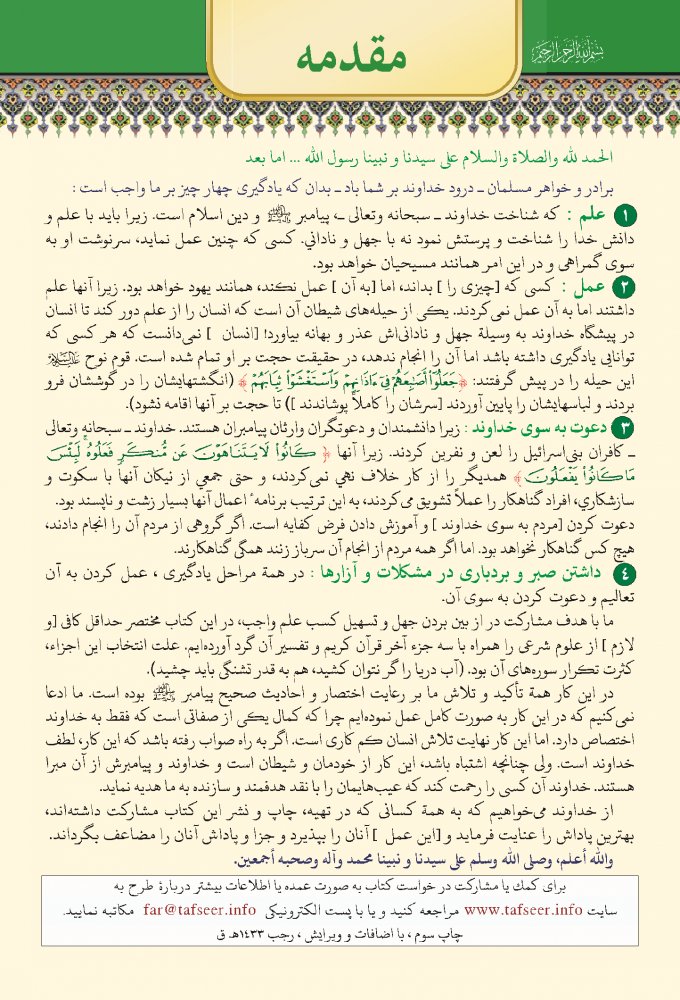 بِسْمِ اللَّهِ الرَّحْمَنِ الرَّحِيمِ
مقدمه
الحمد لله والصلاة والسلام على سيدنا و نبينا رسول الله ... اما بعد
برادر و خواهر مسلمان ـ درود خداوند بر شما باد ـ بدان که یادگیری چهار چیز بر ما واجب است :
١ علم : که شناخت خداوند ـ سبحانه وتعالی ـ، پیامبر ﷺ و دین اسلام است. زیرا باید با علم و
دانش خدا را شناخت و پرستش نمود نه با جهل و ناداني. کسی که چنین عمل نماید، سرنوشت او به
سوی گمراهی و در این امر همانند مسیحیان خواهد بود.
٢ عمل : کسی که [چیزی را ] بداند، اما [به آن ] عمل نکند، همانند یهود خواهد بود. زیرا آنها علم
داشتند اما به آن عمل نمی‌کردند. یکی از حیله‌های شیطان آن است که انسان را از علم دور کند تا انسان
در پیشگاه خداوند به وسیلة جهل و نادانی‌اش عذر و بهانه بیاورد! [انسان ] نمی‌دانست که هر کسی که
توانایی یادگیری داشته باشد اما آن را انجام ندهد، در حقیقت حجت بر او تمام شده است. قوم نوح عليه السلام
این حیله را در پیش گرفتند: ﴿جَعَلُوٓاْ أَصَٰبِعَهُمْ فِىٓ ءَاذَانِهِمْ وَٱسْتَغْشَوْاْ ثِيَابَهُمْ﴾ (انگشتهایشان را در گوششان فرو
بردند و لباسهایشان را پایین آوردند [سرشان را کاملاً پوشاندند ]) تا حجت بر آنها اقامه نشود).
٣ دعوت به سوی خداوند : زیرا دانشمندان و دعوتگران وارثان پیامبران هستند. خداوند ـ سبحانه وتعالی
ـ کافران بنی‌اسرائیل را لعن و نفرین کردند. زیرا آنها ﴿كَانُواْ لَا يَتَنَاهَوْنَ عَن مُّنكَرٍ فَعَلُوهُ لَبِئْسَ
مَا كَانُواْ يَفْعَلُونَ﴾ همدیگر را از کار خلاف نهي نمی‌کردند، و حتی جمعي از نیکان آنها با سکوت و
سازشکاري، افراد گناهکار را عملاً تشویق می‌کردند، به این ترتیب برنامه ٔ اعمال آنها بسیار زشت و ناپسند بود.
دعوت کردن [مردم به سوی خداوند ] و آموزش دادن فرض کفایه است. اگر گروهی از مردم آن را انجام دادند،
هیچ کس گناهکار نخواهد بود. اما اگر همه مردم از انجام آن سرباز زنند همگی گناهکارند.
٤ داشتن صبر و بردباری در مشکلات و آزارها : در همة مراحل یادگیری ، عمل کردن به آن
تعالیم و دعوت کردن به سوی آن.
ما با هدف مشارکت در از بین بردن جهل و تسهیل کسب علم واجب، در این کتاب مختصر حداقل کافی [و
لازم ] از علوم شرعی را همراه با سه جزء آخر قرآن کریم و تفسیر آن گرد آورده‌ایم. علت انتخاب این اجزاء،
کثرت تکرار سوره‌های آن بود. (آب دریا را گر نتوان کشید، هم به قدر تشنگی باید چشید).
در این کار همة تأکید و تلاش ما بر رعایت اختصار و احادیث صحیح پیامبر ﷺ بوده است. ما ادعا
نمی‌کنیم که در این کار به صورت کامل عمل نموده‌ایم چرا که کمال یکی از صفاتی است که فقط به خداوند
اختصاص دارد. اما این کار نهایت تلاش انسان کم کاری است. اگر به راه صواب رفته باشد که این کار، لطف
خداوند است. ولی چنانچه اشتباه باشد، این کار از خودمان و شیطان است و خداوند و پیامبرش از آن مبرا
هستند. خداوند آن کسی را رحمت کند که عیب‌هایمان را با نقد هدفمند و سازنده به ما هدیه نماید.
از خداوند می‌خواهیم که به همة کسانی که در تهیه، چاپ و نشر این کتاب مشارکت داشته‌اند،
بهترین پاداش را عنایت فرماید و [این عمل ] آنان را بپذیرد و جزا و پاداش آنان را مضاعف بگرداند.
والله أعلم، وصلى الله وسلم على سيدنا و نبينا محمد وآله وصحبه أجمعين.
برای کمك یا مشارکت در خواست کتاب به صورت عمده یا اطلاعات بیشتر دربارة طرح به
سایت www.tafseer.info مراجعه کنید و یا با پست الکترونیکی far@tafseer.info مکاتبه نمایید.
چاپ سوم ، با اضافات و ویرایش ، رجب ١٤٣٣هـ ق